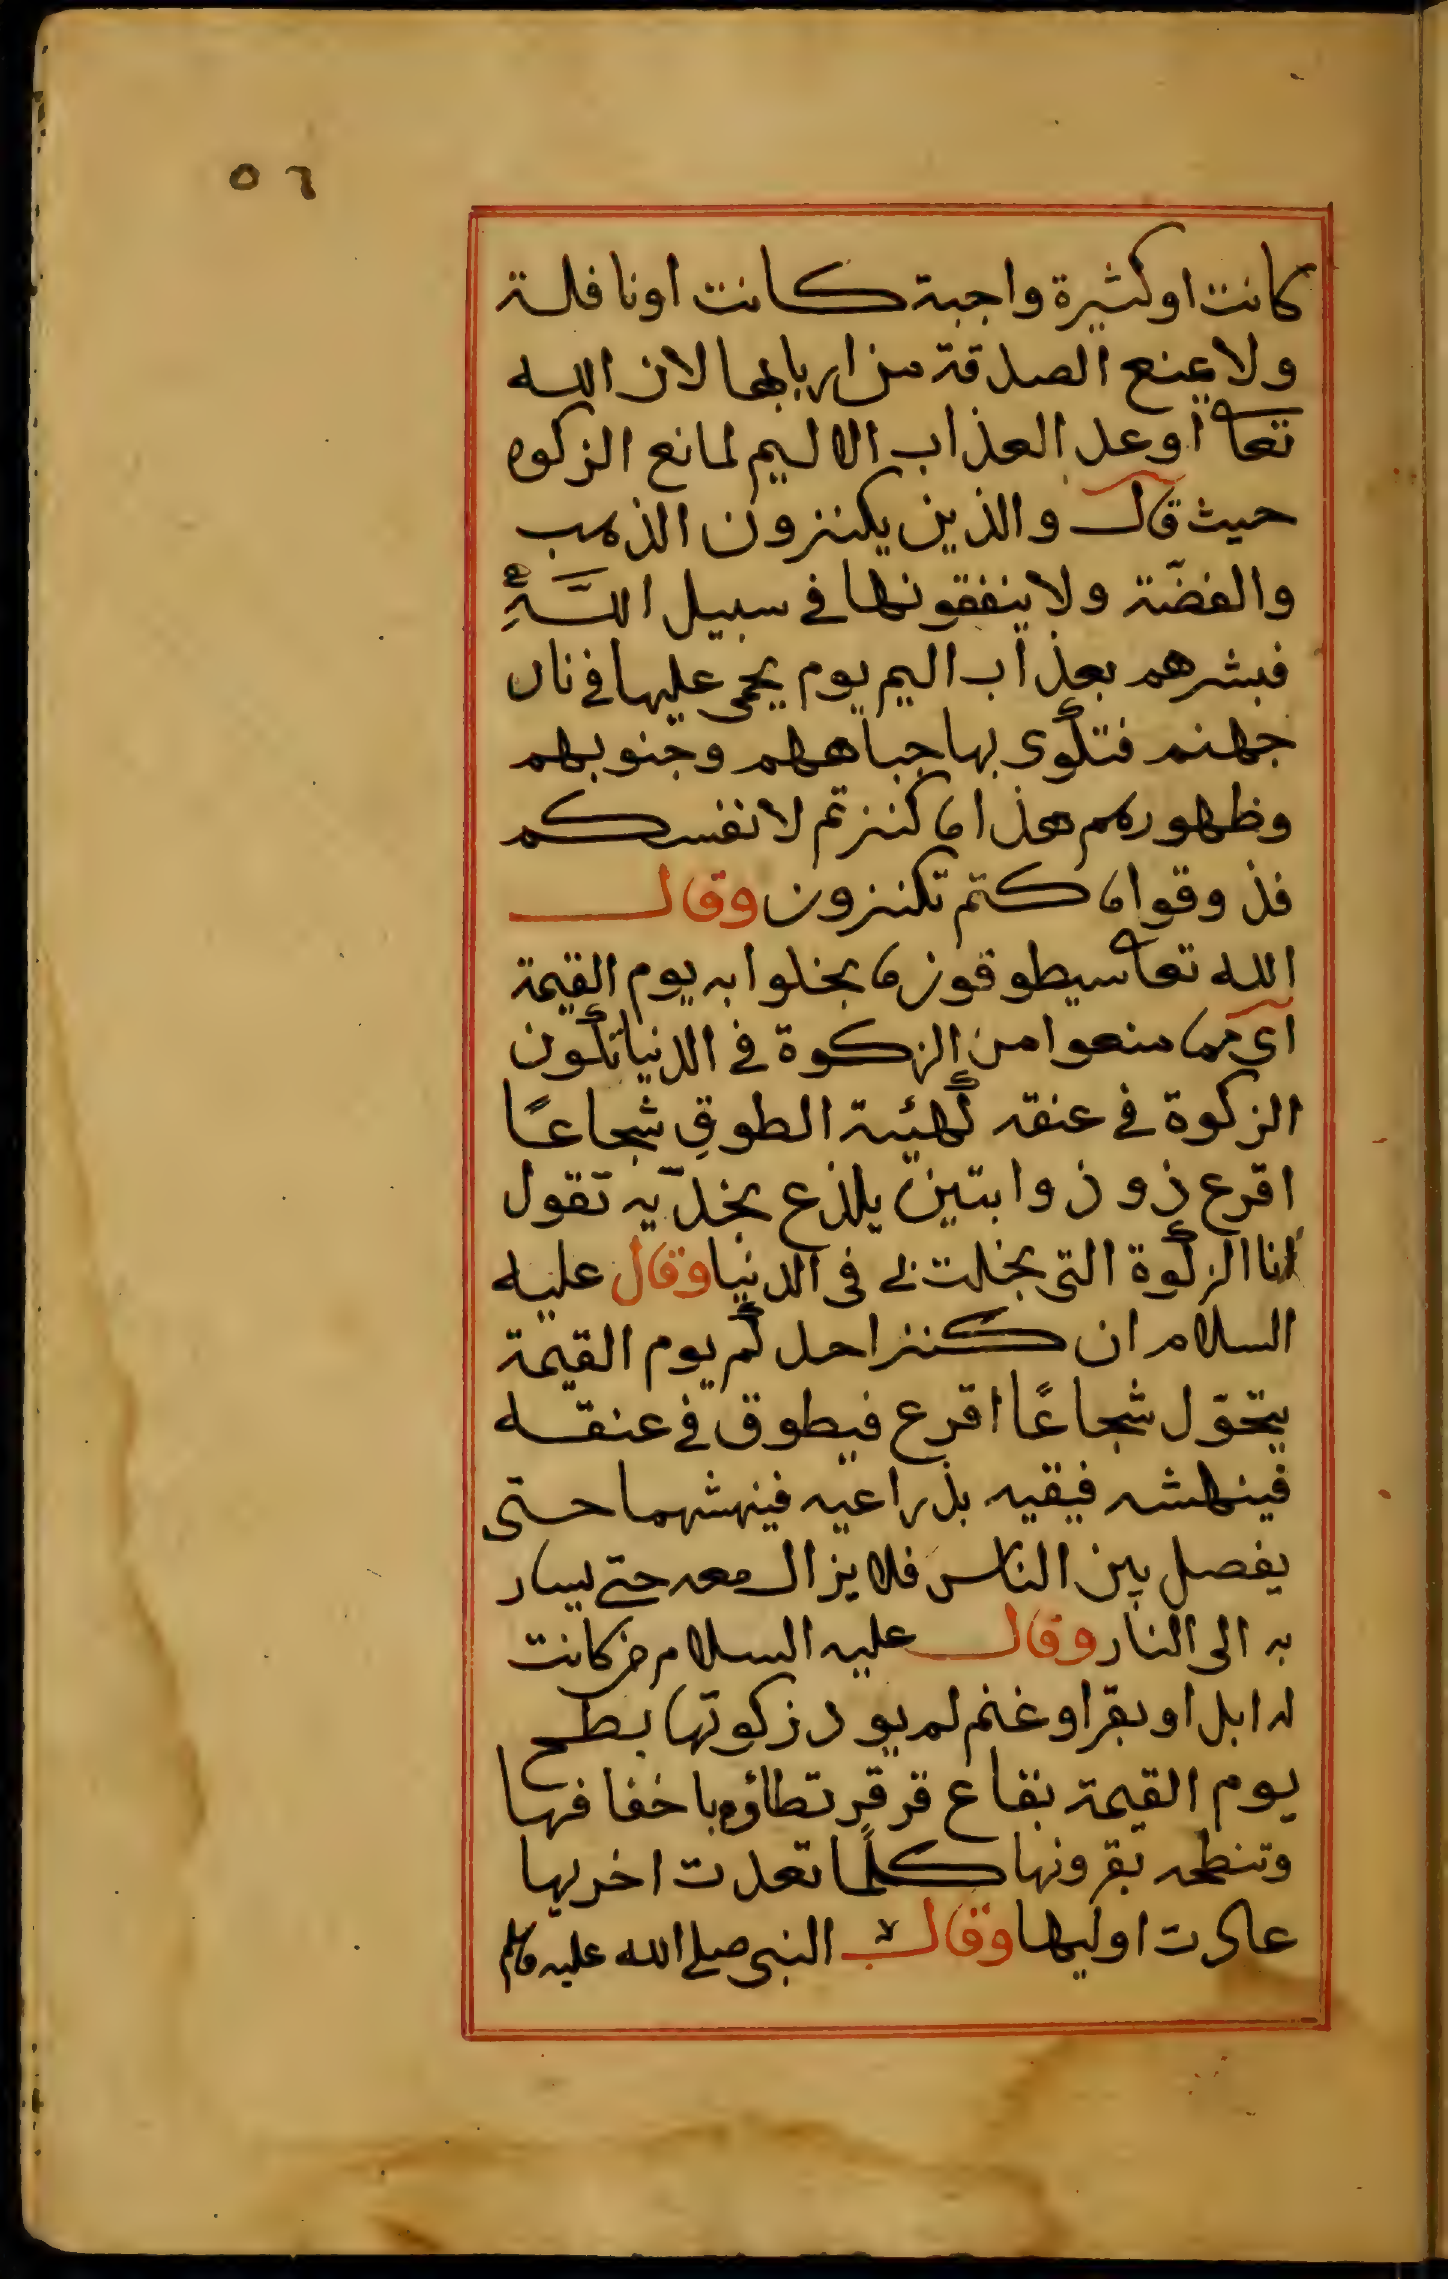 ٥٦
كانت او كثيرة واجبة كانت او نافلة
ولا يمنع الصدقة من اربابها لان الله
تعا اوعد العذاب الاليم لمانع الزكوه
حيث قال والذين يكنزون الذهب
والفضّة ولا ينفقونها في سبيل اللّه
فبشرهم بعذاب اليم يوم يحمى عليها في نار
جهنم فتكوى بها جباههم وجنوبهم
وظهورهم هذا ما كنزتم لانفسكم
فذوقوا ما كنتم تكنزون وقال
الله تعا سيطوقون ما بخلوا به يوم القيمة
اي مما منعوا من الزكوة في الدنيا تكون
الزكوة في عنقه كهيئة الطوقِ شجاعًا
اقرع ذو ذوابتين يلذع بخدّيه تقول
انا الزكوة التى بخلت بى فى الدنيا وقال عليه
السلام ان كنز احدكم يوم القيمة
يتحوّل شجاعًا اقرع فيطوق في عنقه
فينهشه فيقيه بذراعيه فينهشهما حتى
يفصل بين الناس فلا يزال معه حتى يسار
به الى النار وقال عليه السلام من كانت
له ابل او بقر او غنم لم يود زكوتها بطح
يوم القيمة بقاع قرقر تطاؤه باخفافها
وتنطحه بقرونها كلما تعدت اخريها
عادت اوليها وقال النبى صلى الله عليه وسلم